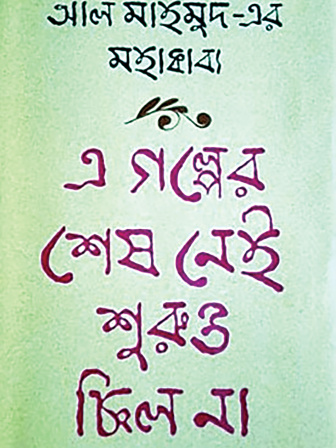 আল মাহমুদ-এর
মহাকাব্য
এ গল্পের
শেষ নেই
শুরুও
ছিল না